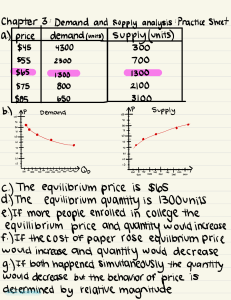 Chapter 3: Demand and Supply analysis: Practice Sheet
a) price demand (units) supply (units)
$45 4300 300
$55 2300 700
$65 1300 1300
$75 800 2100
$85 650 3100
b) P Demand P Supply
QD
c.) The equilibrium price is $65
d.) The equilibrium quantity is 1300 units
e.) If more people enrolled in college the
equilibrium price and quantity would increase
f.) If the cost of paper rose equilibrium price
would increase and quantity would decrease
g.) If both happened simultaneously the quantity
would decrease but the behavior of price is
determined by relative magnitude